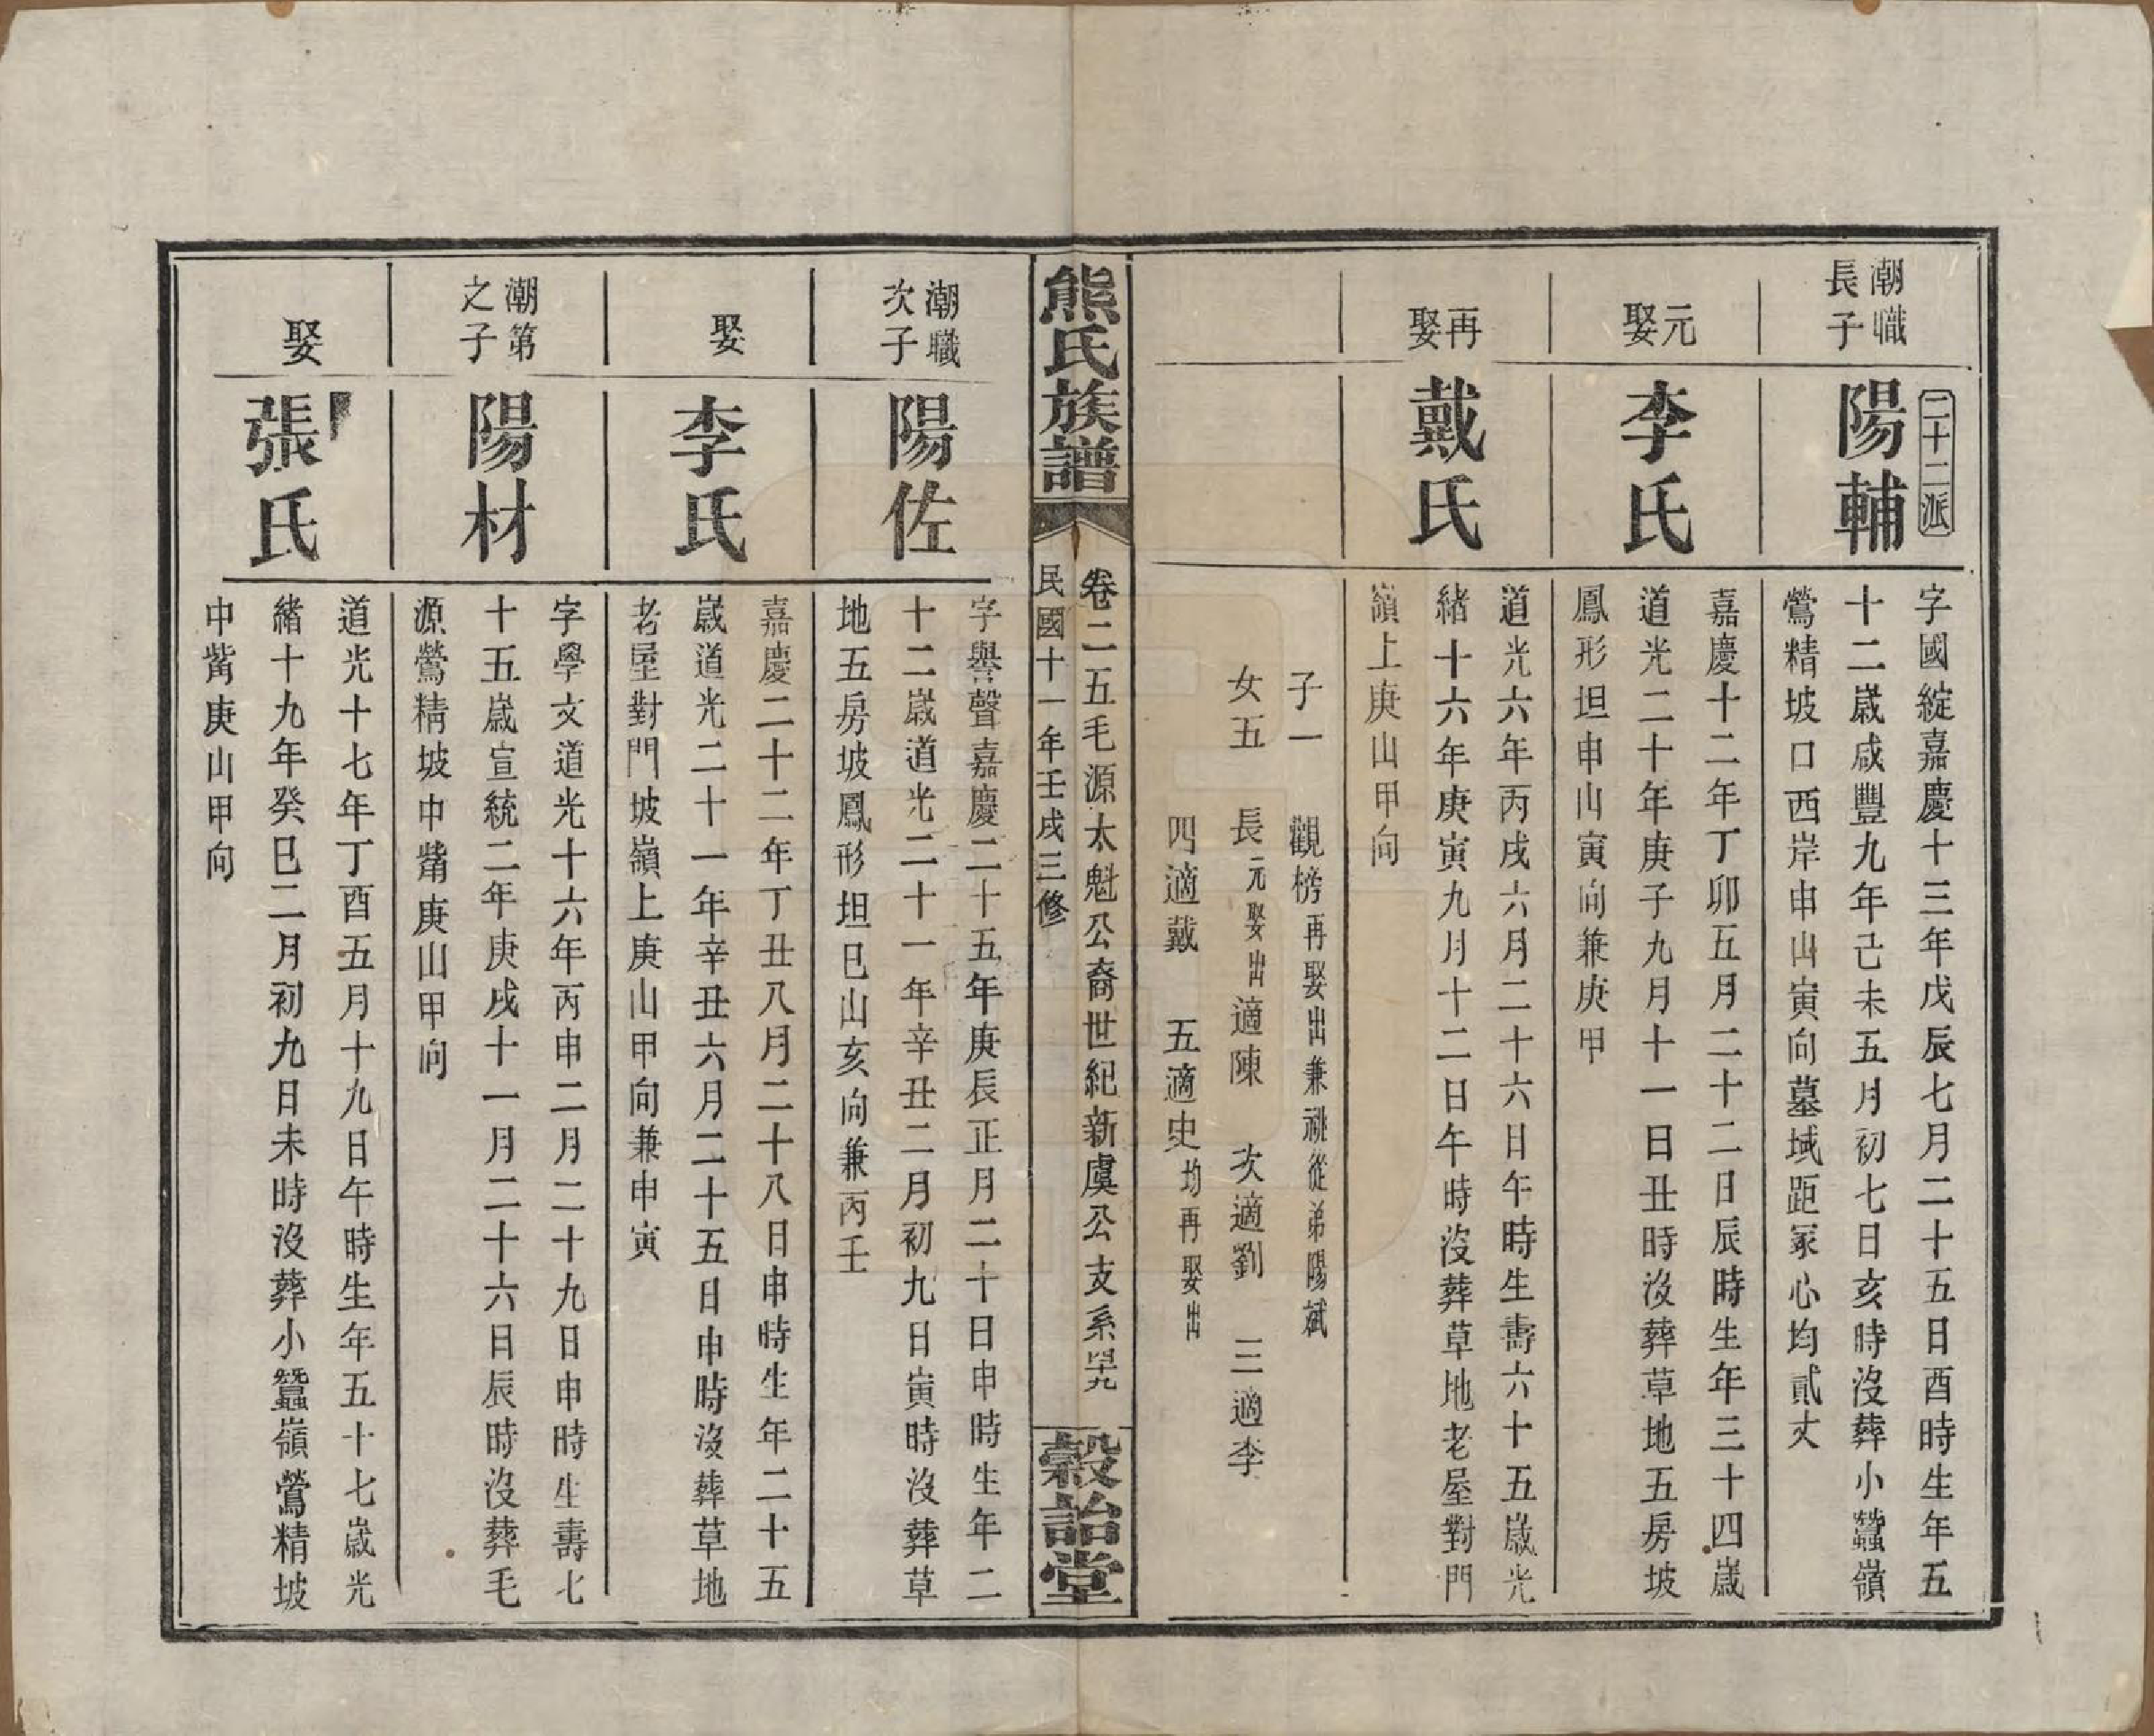 潮職
長子
二十二派
陽輔
字國綻嘉慶十三年戊辰七月二十五日酉時生年五
十二歲咸豐九年己未五月初七日亥時沒葬小蠶嶺
鶯精坡口西岸申山寅向墓域距冢心均貳丈
元
娶
李氏
嘉慶十二年丁卯五月二十二日辰時生年三十四歲
道光二十年庚子九月十一日丑時沒葬草地五房坡
鳳形坦申山寅向兼庚甲
再
娶
戴氏
道光六年丙戌六月二十六日午時生壽六十五歲光
緒十六年庚寅九月十二日午時沒葬草地老屋對門
嶺上庚山甲向
子一 觀榜再娶出兼祧從弟陽斌
女五 長元娶出適陳 次適劉 三適李
四適戴 五適史均再娶出
熊氏族譜
卷二五毛源太魁公裔世紀新虞公支系
民國十一年壬戌三修
穀詒堂
潮職
次子
陽佐
字譽聲嘉慶二十五年庚辰正月二十日申時生年二
十二歲道光二十一年辛丑二月初九日寅時沒葬草
地五房坡鳳形坦巳山亥向兼丙壬
娶
李氏
嘉慶二十二年丁丑八月二十八日申時生年二十五
歲道光二十一年辛丑六月二十五日申時沒葬草地
老屋對門坡嶺上庚山甲向兼申寅
潮第
之子
陽材
字學文道光十六年丙申二月二十九日申時生壽七
十五歲宣統二年庚戌十一月二十六日辰時沒葬毛
源鶯精坡中觜庚山甲向
娶
張氏
道光十七年丁酉五月十九日午時生年五十七歲光
緒十九年癸巳二月初九日未時沒葬小蠶嶺鶯精坡
中觜庚山甲向